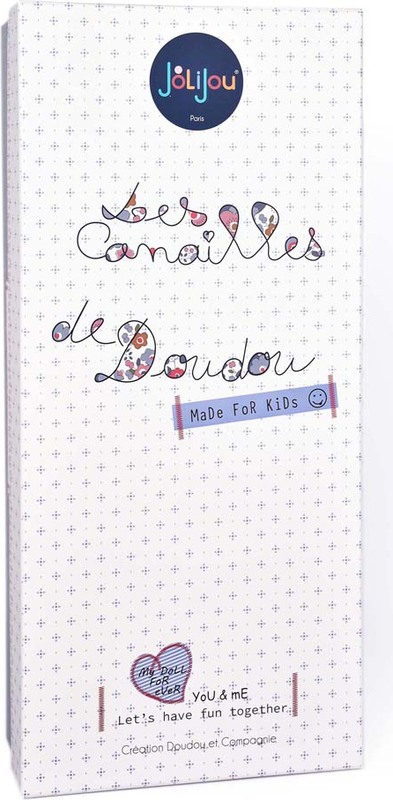 JoLiJou®
Paris
Les
Canailles
de Doudou
MaDe FoR KiDs
My DoLL
FoR
eVeR
YoU & mE
Let's have fun together
Création Doudou et Compagnie